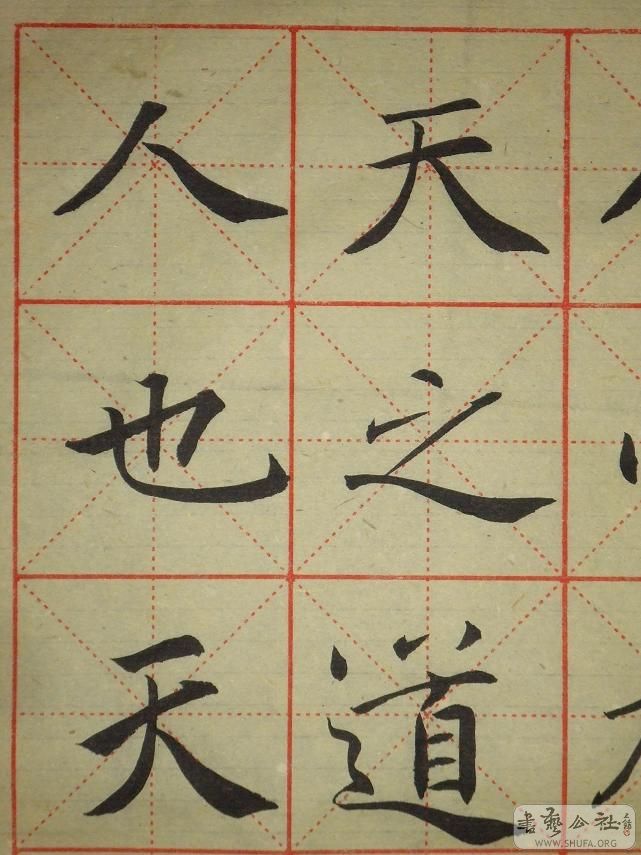 天之道
人也天
書藝公社
WWW.SHUFA.ORG